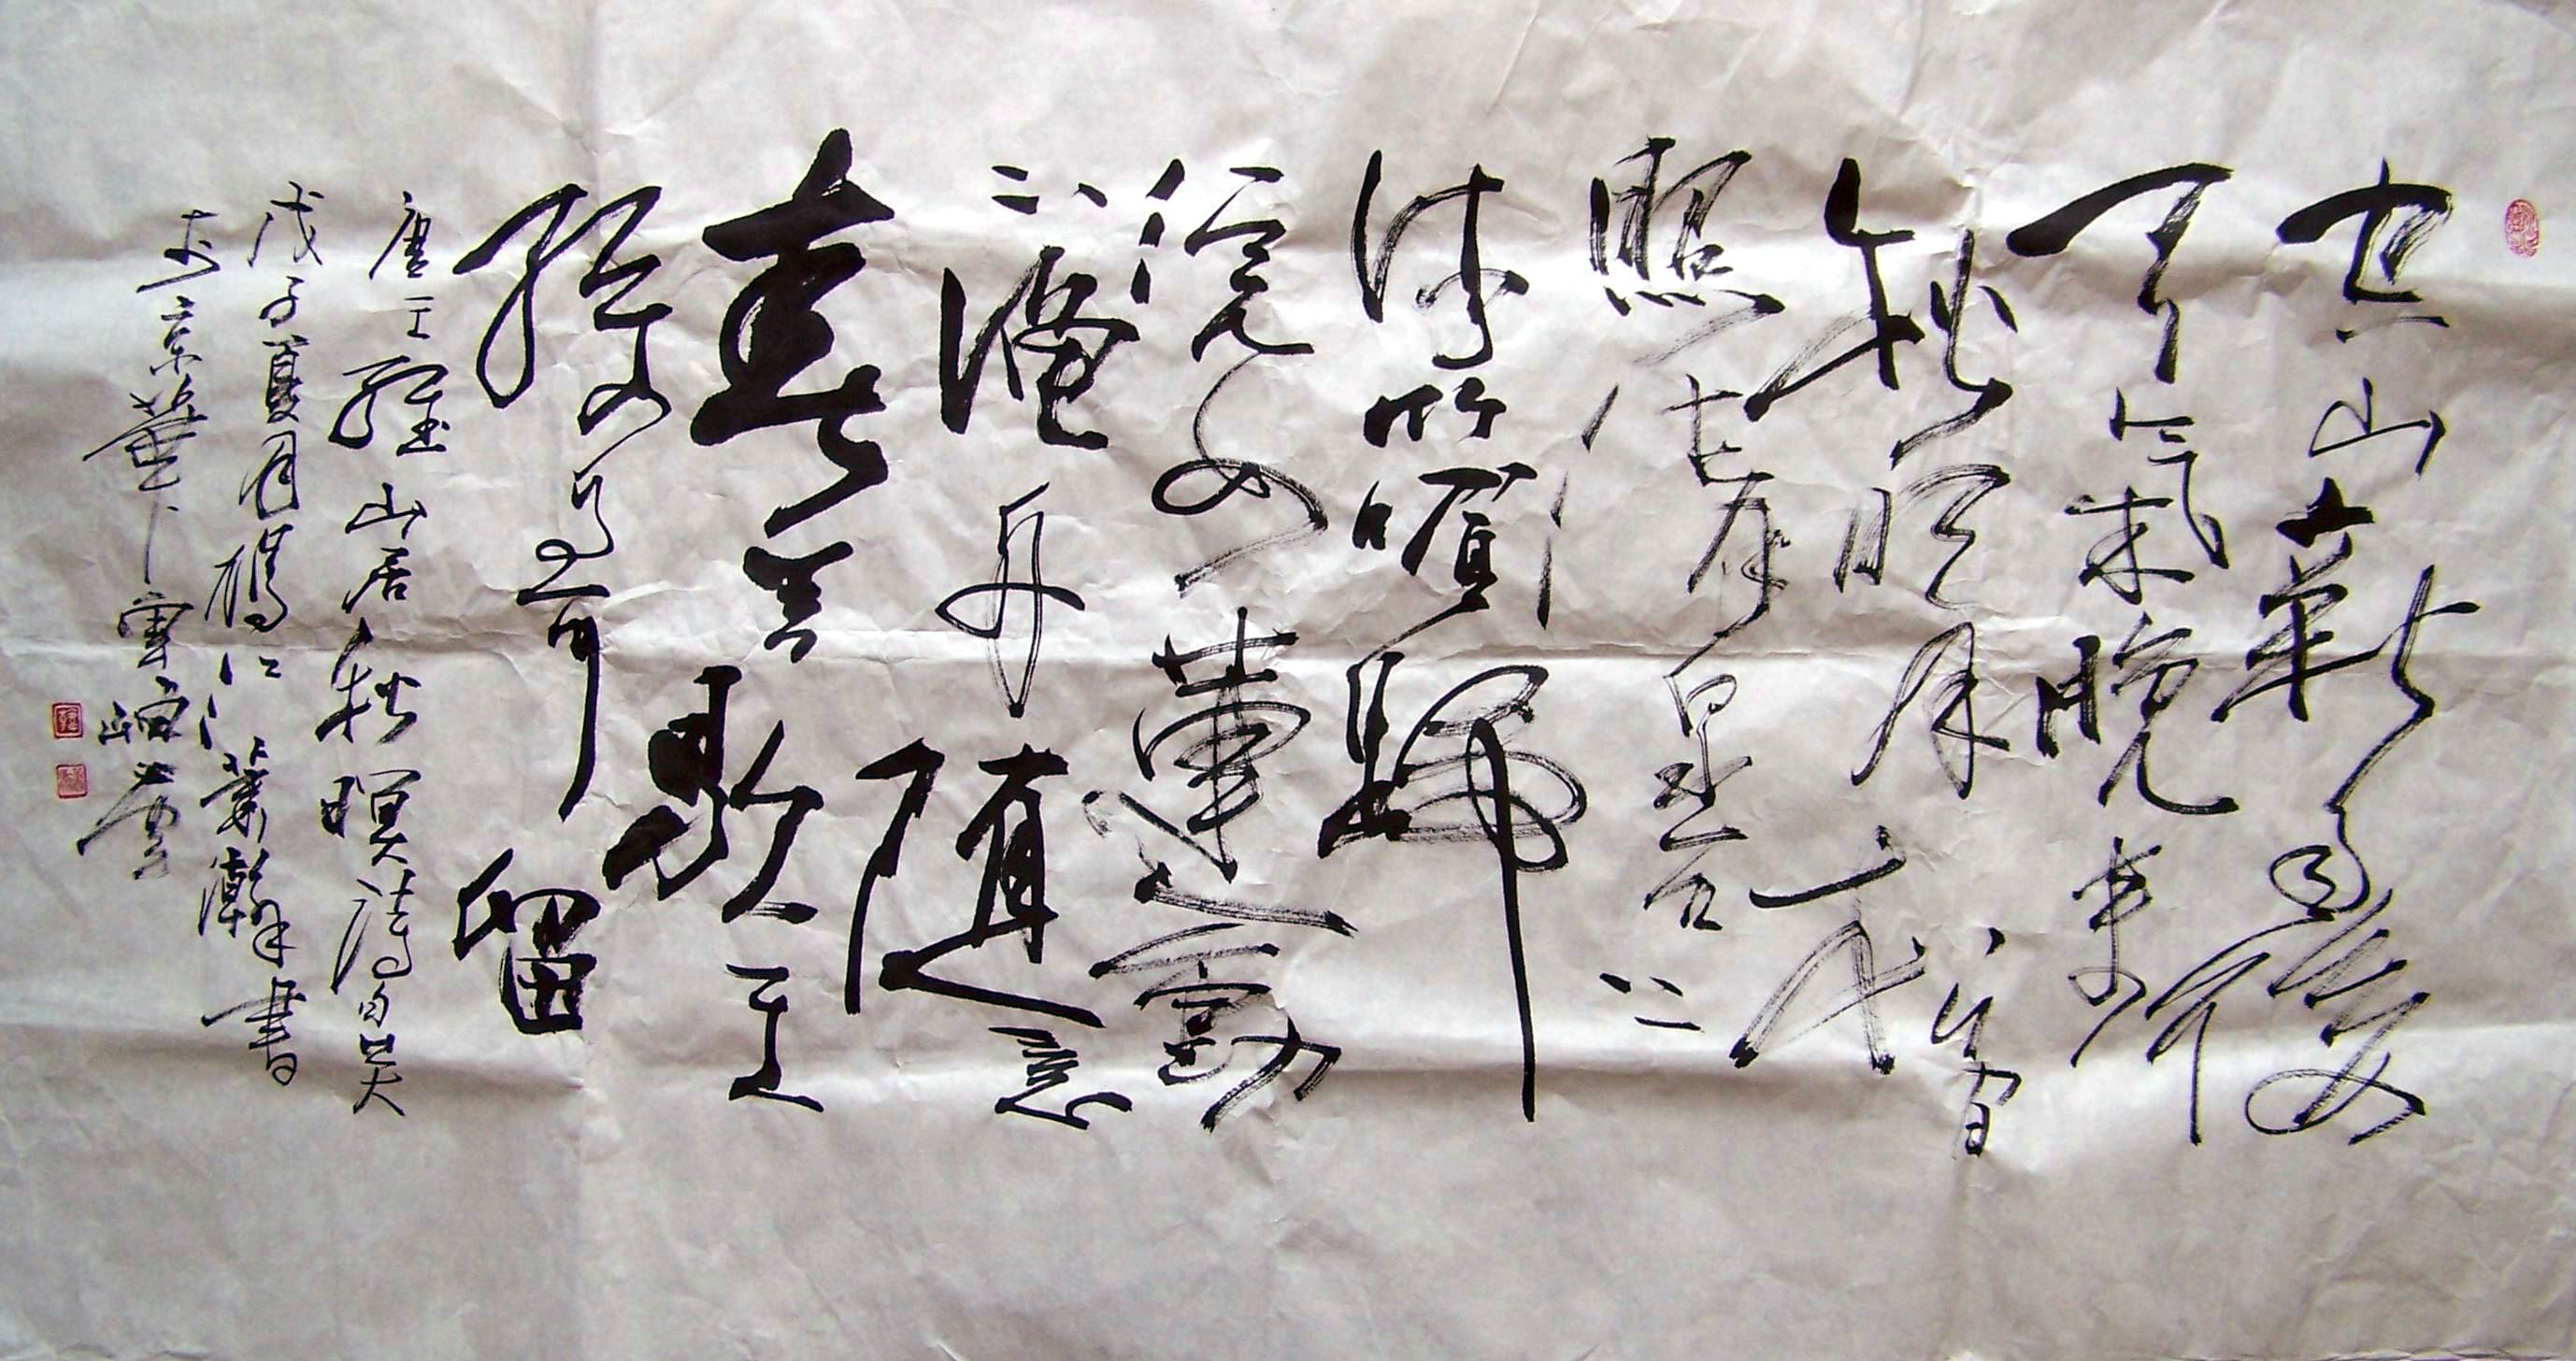 空山新雨後
天氣晚來
秋明月松間
照清泉石上
流竹喧歸
浣女蓮動
下漁舟隨意
春芳歇王
孫自可留
唐王維山居秋暝詩
戊子夏月江瀚書
於京華下雲岫